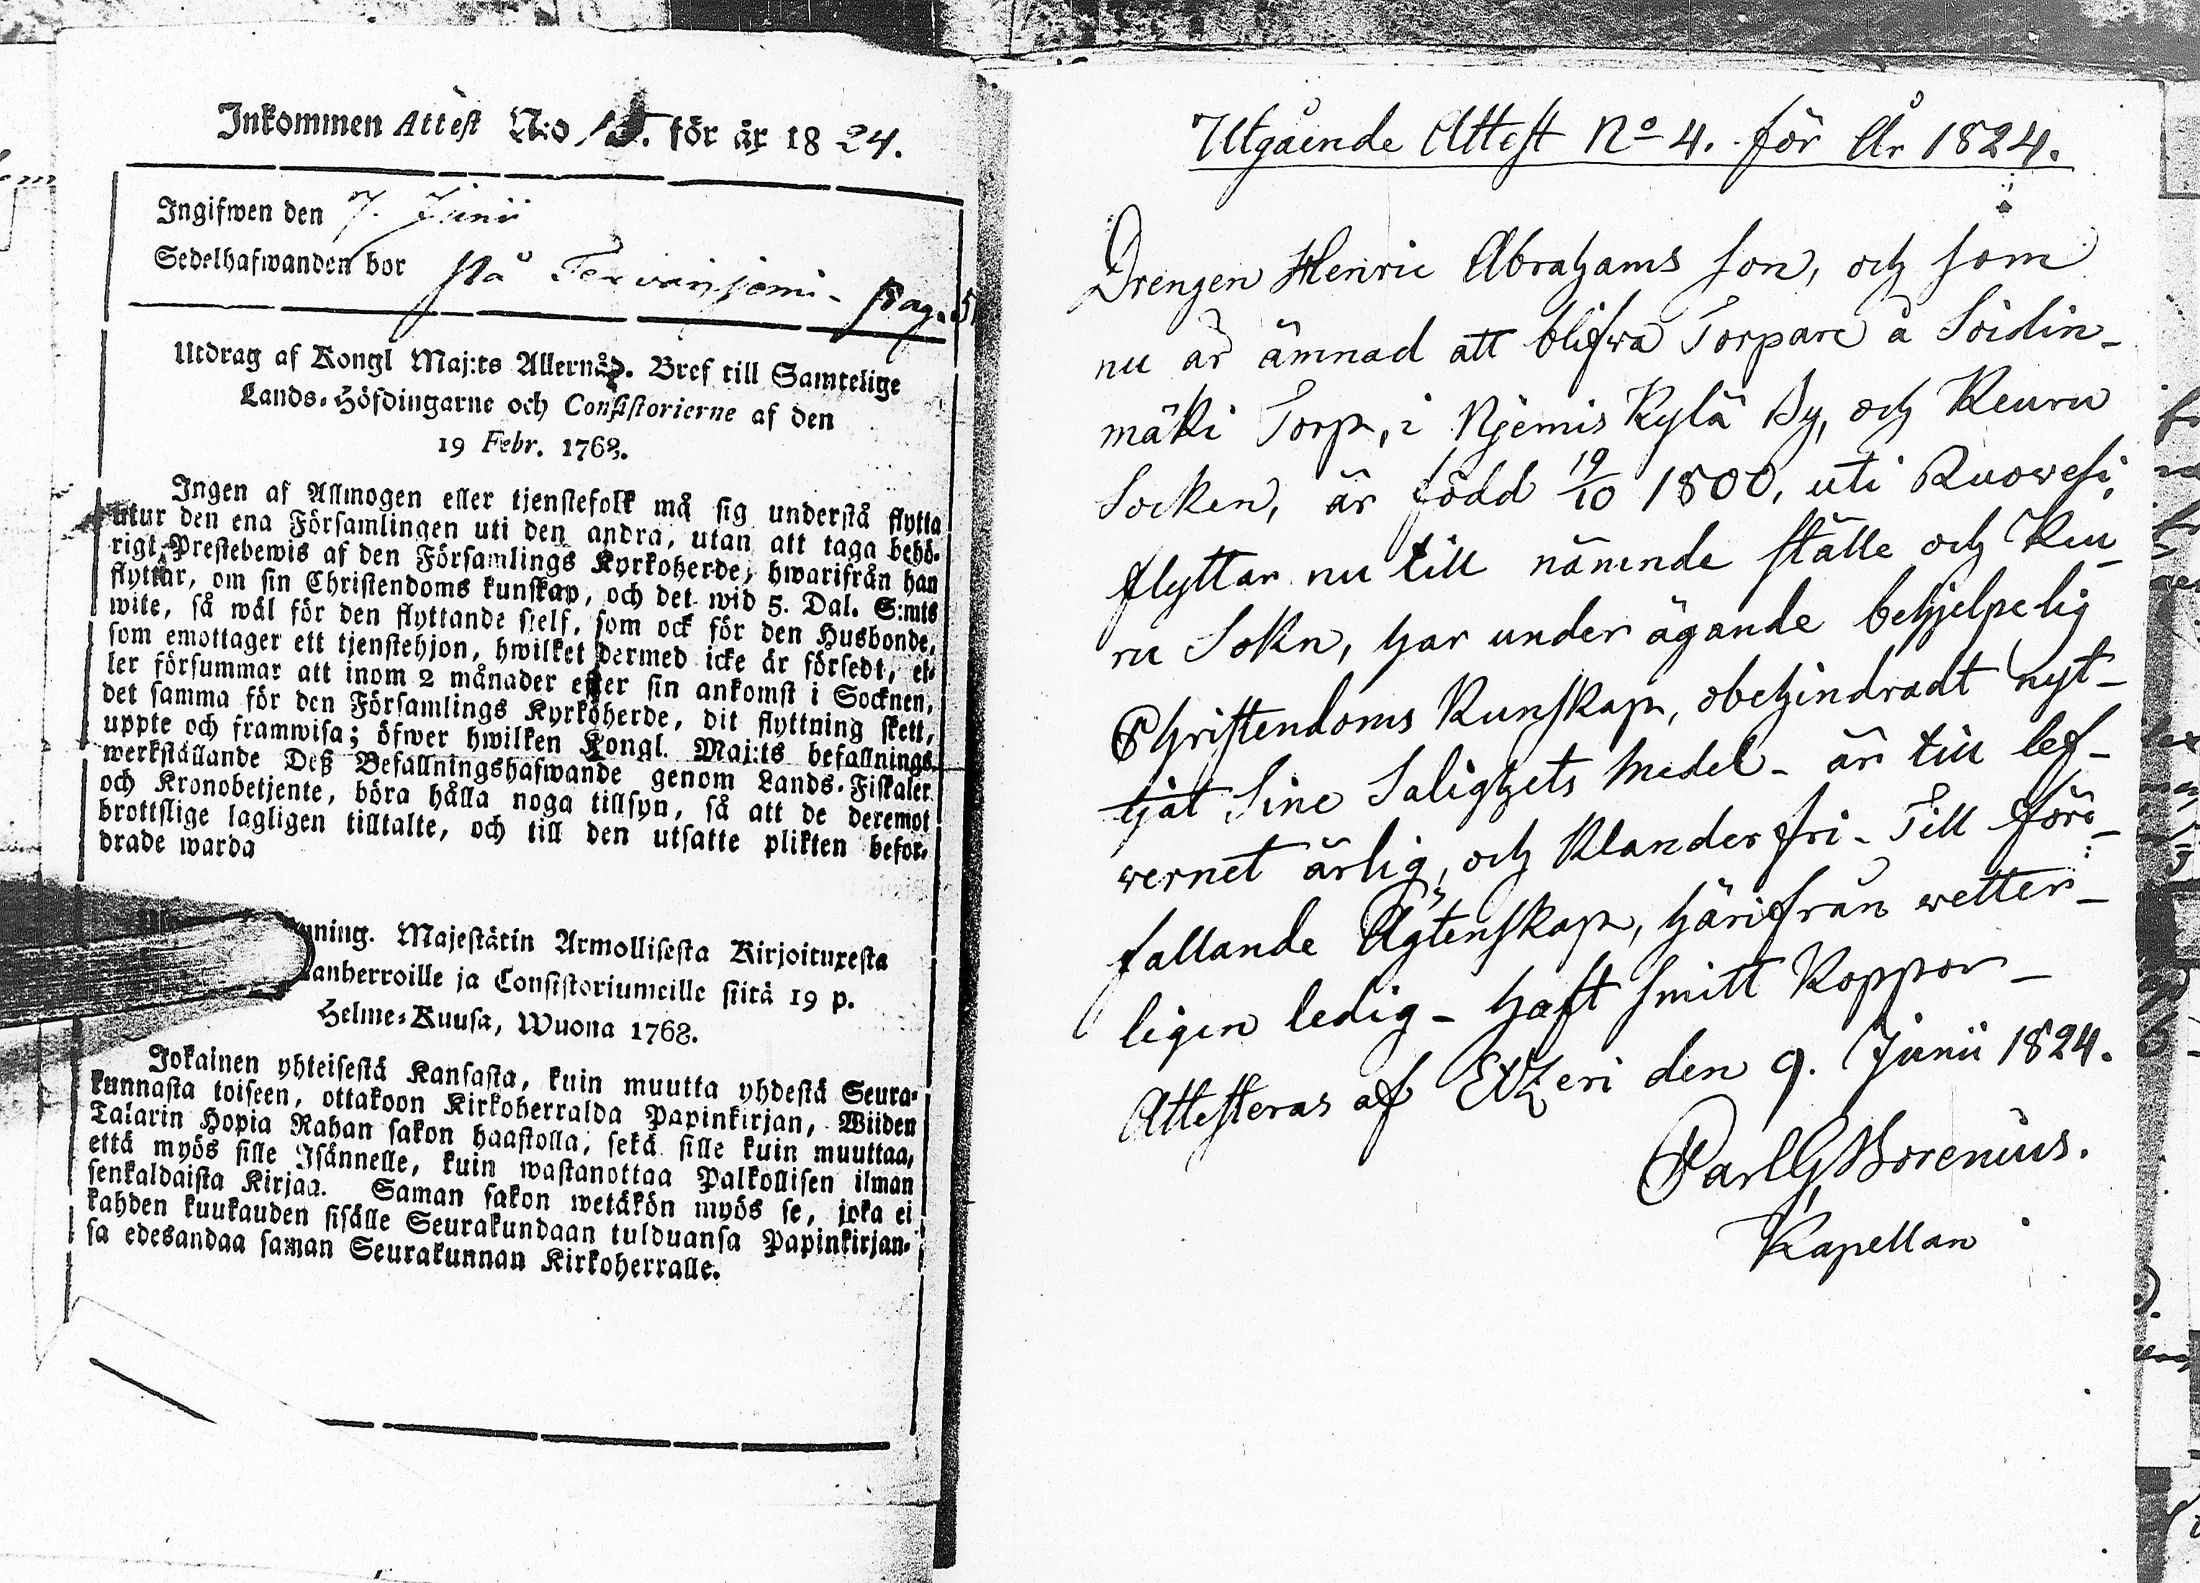 Inkommen Attest N:o 15. för år 1824.
Ingifwen den 7. Junii
Sedelhafwanden bor på Tervaniemi - pag. 5
Utdrag af Kongl Maj:ts Allernåd. Bref till Samtelige
Lands-Höfdingarne och Consistorierne af den
19 Febr. 1768.
Ingen af Allmogen eller tjenstefolk må sig understå flytta
utur den ena Församlingen uti den andra, utan att taga behö-
rigt Prestebewis af den Församlings Kyrkoherde, hwarifrån han
flyttar, om sin Christendoms kunskap, och det wid 5. Dal. S:mts
wite, så wäl för den flyttande sjelf, som ock för den Husbonde,
som emottager ett tjenstehjon, hwilket dermed icke är försedt, el-
ler försummar att inom 2 månader efter sin ankomst i Socknen,
det samma för den Församlings Kyrkoherde, dit flyttning skett,
uppte och framwisa; öfwer hwilken Kongl. Maj:ts befallnings
werkställande Deß Befallningshafwande genom Lands-Fiskaler
och Kronobetjente, böra hålla noga tillsyn, så att de deremot
brottslige lagligen tilltalte, och till den utsatte plikten befor-
drade warda
ning. Majestätin Armollisesta Kirjoituxesta
anherroille ja Consistoriumeille siitä 19 p.
Helme-Kuusa, Wuona 1768.
Jokainen yhteisestä Kansasta, kuin muutta yhdestä Seura-
kunnasta toiseen, ottakoon Kirkoherralda Papinkirjan, Wiiden
Talarin Hopia Rahan sakon haastolla, sekä sille kuin muuttaa,
että myös sille Isännelle, kuin wastanottaa Palkollisen ilman
senkaldaista Kirjaa. Saman sakon wetäkön myös se, joka ei
kahden kuukauden sisälle Seurakundaan tulduansa Papinkirjan-
sa edesandaa saman Seurakunnan Kirkoherralle.
Utgående Attest No 4. för År 1824.
Drengen Henric Abrahams son, och som
nu är ämnad att blifwa Torpare å Soidin-
mäki Torp, i Njemis Kylä By, och Keuru
Socken, är född 19/10 1800, uti Ruowesi,
flyttar nu till nämnde ställe och Keu-
ru Sokn, har under ägande behjelpelig
Christendoms Kunskap, obehindradt nyt-
tjat Sine Salighets Medel - är till lef-
wernet ärlig, och Klanderfri - Till före-
fallande Ägtenskap, härifrån wetter-
ligen ledig - haft smitt Koppor -
Attesteras af Etzeri den 9. Junii 1824.
Carl G Borenius.
Kapellan